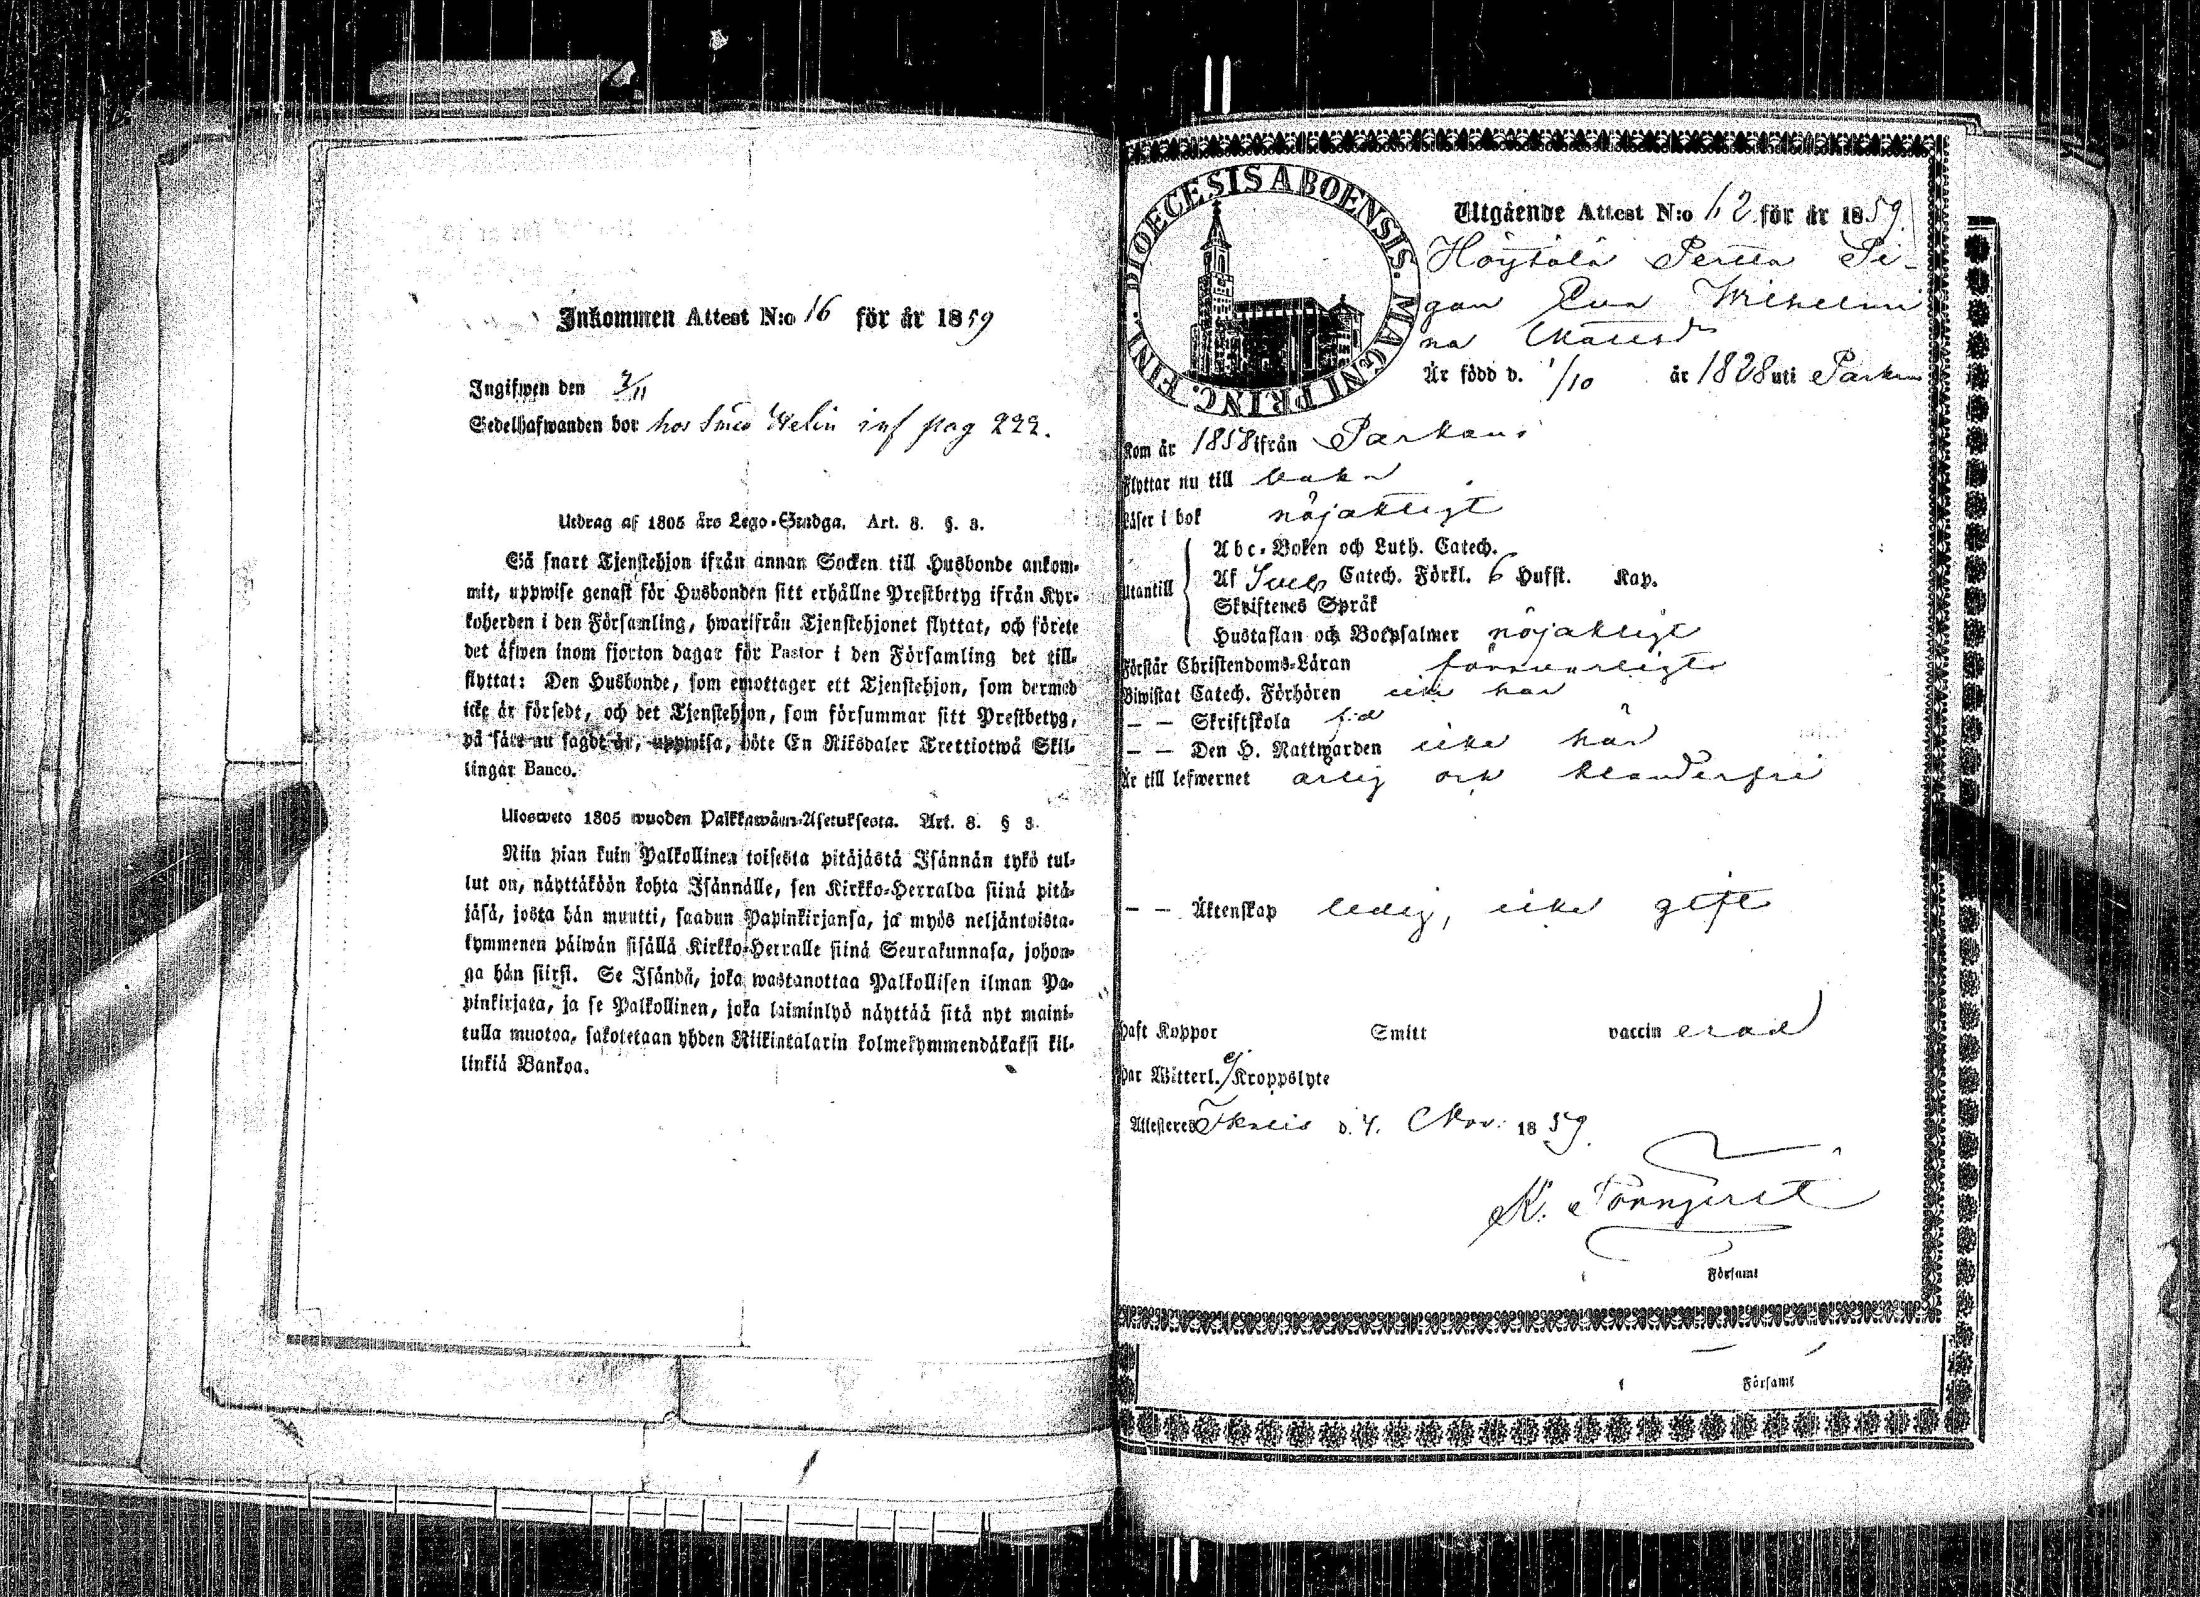 Inkommen Attest N:o 16 för år 1859
Ingifwen den 3/11
Sedelhafwanden bor hos Smed Welin inf pag 222.
Utdrag af 1805 års Lego-Stadga. Art. 8. §. 3.
Så snart Tjenstehjon ifrån annan Socken till Husbonde ankom-
mit, uppwise genast för Husbonden sitt erhållne Prestbetyg ifrån Kyr-
koherden i den Församling, hwarifrån Tjenstehjonet flyttat, och förete
det äfwen inom fjorton dagar för Pastor i den Församling det till-
flyttat: Den Husbonde, som emottager ett Tjenstehjon, som dermed
icke är försedt, och det Tjenstehjon, som försummar sitt Prestbetyg,
på sätt nu sagdt är, uppwisa, böte En Riksdaler Trettiotwå Skil-
lingar Banco.
Ulosweto 1805 wuoden Palkkawäen-Asetuksesta. Art. 8. § 3.
Niin pian kuin Palkollinen toisesta pitäjästä Isännän tykö tul-
lut on, näyttäköön kohta Isännälle, sen Kirkko-Herralda siinä pitä-
jäsä, josta hän muutti, saadun Papinkirjansa, ja myös neljäntoista-
kymmenen päiwän sisällä Kirkko-Herralle siinä Seurakunnasa, johon-
ga hän siirsi. Se Isändä, joka wastanottaa Palkollisen ilman Pa-
pinkirjata, ja se Palkollinen, joka laiminlyö näyttää sitä nyt maini-
tulla muotoa, sakotetaan yhden Riikintalarin kolmekymmendäkaksi kil-
linkiä Bankoa.
DIOECESIS ABOENSIS. MAGNI PRINC. FINL.
Utgående Attest N:o 62 för år 1859.
Höytölä Pertta Pi-
gan Eva Wilhelmi
na Matsdr
Är född d. 1/10 år 1828 uti Parkano
Kom år 1858 ifrån Parkano
Flyttar nu till
Läser i bok nöjaktigt
Utantill
Abc-Boken och Luth. Catech.
Af Sveb Catech. Förkl. 6 Hufst. Kap.
Skriftenes Språk
Hustaflan och Botpsalmer nöjaktigt
Förstår Christendoms-Läran försvarligt
Biwistat Catech. Förhören icke här
— — Skriftskola
— — Den H. Nattwarden icke här
Är till lefwernet ärlig och klanderfri
— — Äktenskap ledig, icke gift
Haft Koppor Smitt vaccin erad
Har Witterl. ej Kroppslyte
Attesteres Ikalis d. 4. Nov. 1859.
K. Törnqvist
Församl
Församl